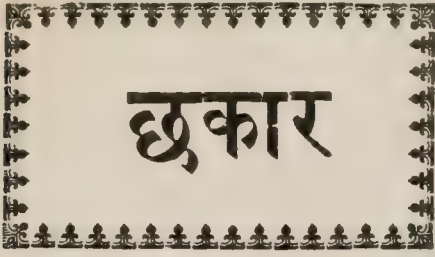 छकार